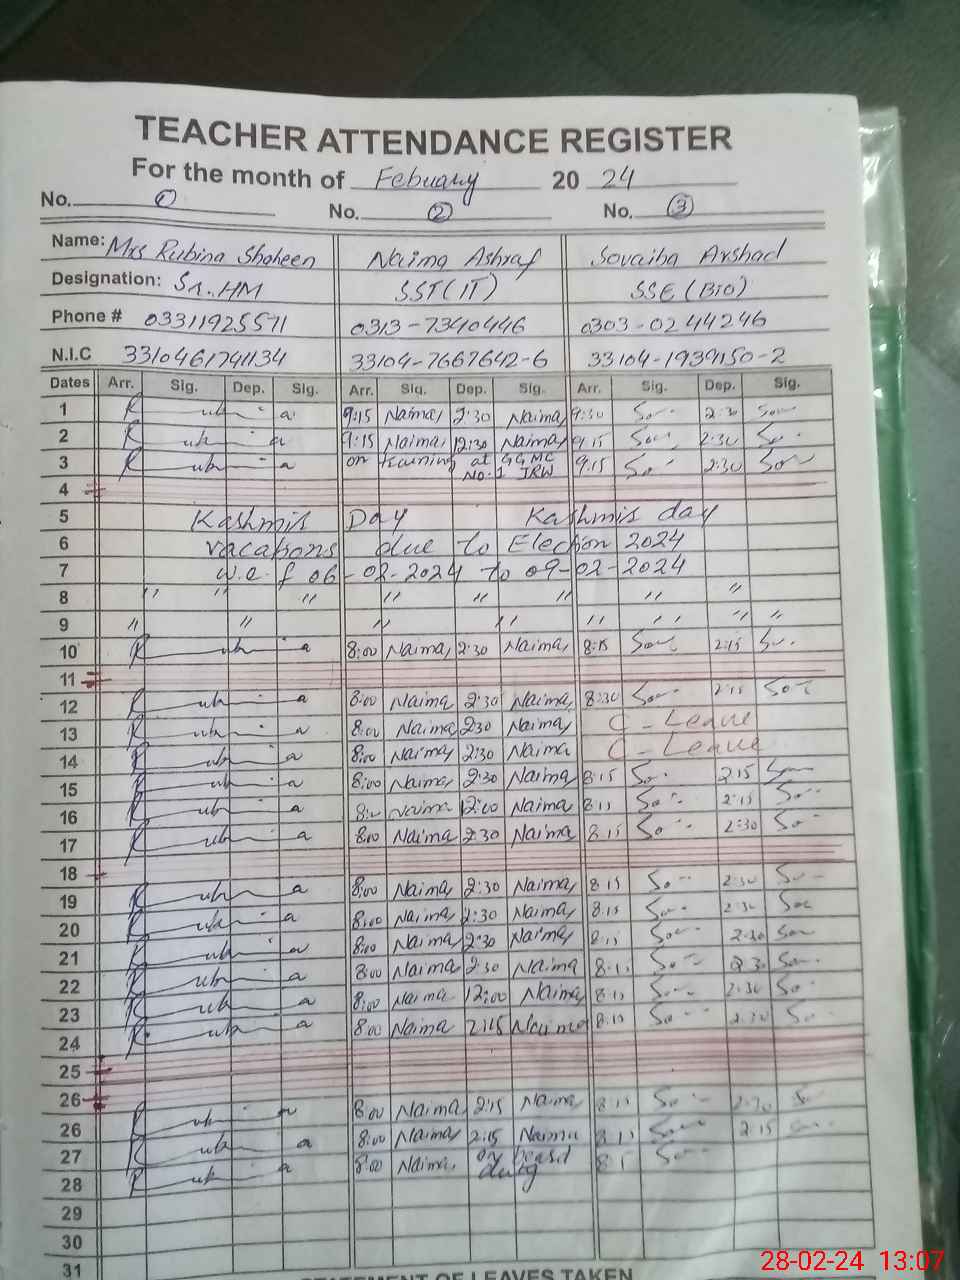 TEACHER ATTENDANCE REGISTER
For the month of Febuary 20 24
No. 1 No. 2 No. 3
Name: Mrs Rubina Shaheen Naima Ashraf Sovaiba Arshad
Designation: Sr. HM SST(IT) SSE(Bio)
Phone # 03311925571 0313-7340446 0303-0244246
N.I.C 3310461741134 33104-7667642-6 33104-1939150-2
Dates Arr. Sig. Dep. Sig. Arr. Sig. Dep. Sig. Arr. Sig. Dep. Sig.
1 9:15 Naima 2:30 Naima 9:30 2:30
2 9:15 Naima 12:30 Naima 9:15 2:30
3 on training at GGMC No.1 JRW 9:15 2:30
4
5 Kashmis Day Kashmis day
6 vacations due to Election 2024
7 w.e.f 06-02-2024 to 09-02-2024
8 " " " " " " " "
9 " " " " " " " "
10 8:00 Naima 2:30 Naima 8:15 2:15
11
12 8:00 Naima 2:30 Naima 8:30 2:15
13 8:00 Naima 2:30 Naima C-Leave
14 8:00 Naima 2:30 Naima C-Leave
15 8:00 Naima 2:30 Naima 8:15 2:15
16 Naima 12:00 Naima 2:15
17 8:00 Naima 2:30 Naima 8:15 2:30
18
19 8:00 Naima 2:30 Naima 8:15 2:30
20 8:00 Naima 2:30 Naima 8:15 2:30
21 8:00 Naima 2:30 Naima 2:30
22 8:00 Naima 2:30 Naima
23 8:00 Naima 12:00 Naima 2:30
24 8:00 Naima 2:15 Naima 2:30
25
26
26 8:00 Naima 2:15 Naima
27 8:00 Naima 2:15 Naima 2:15
28 8:00 Naima on board duty
29
30
31
STATEMENT OF LEAVES TAKEN
28-02-24 13:07